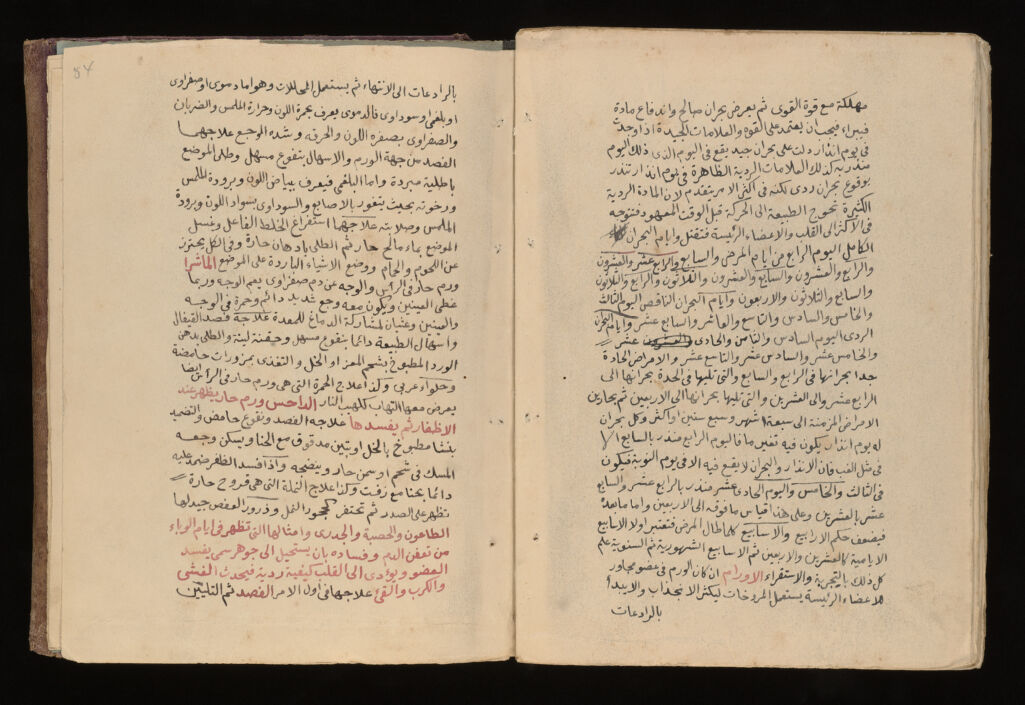 مهلكة مع قوة القوى ثم يعرض بحران صالح واندفاع مادة
فيبراء فيجب ان يعتمد على القوة والعلامات الجيدة اذا وجدت
فى يوم انذار دلت على بحران جيد يقع فى اليوم الذى ذلك اليوم
منذر به كذلك العلامات الردية الظاهرة فى يوم انذار تنذر
بوقوع بحران ردى لكنه فى اكثر الامر يتقدم لان المادة الردية
الكثيرة تحوج الطبيعة الى الحركة قبل الوقت المعهود فتتوجه
فى الاكثر الى القلب والاعضاء الرئيسة فتقتل وايام البحران
الكامل اليوم الرابع من ايام المرض والسابع والرابع عشر والعشرون
والرابع والعشرون والسابع والعشرون والثلاثون والرابع والثلاثون
والسابع والثلاثون والاربعون وايام البحران الناقص اليوم الثالث
والخامس والسادس والتاسع والعاشر والسابع عشر وايام البحران
الردى اليوم السادس والثامن والحادى عشر
والخامس عشر والسادس عشر والتاسع عشر والامراض الحادة
جدا بحرانها فى الرابع والسابع والتى تليها فى الحدة بحرانها الى
الرابع عشر والى العشرين والتى تليها بحرانها الى الاربعين ثم بحارين
الامراض المزمنة الى سبعة اشهر وسبع سنين او اكثر وكل بحران
له يوم انذار يكون فيه تغير ما فاليوم الرابع منذر بالسابع الا
فى مثل الغب فان الانذار والبحران لا يقع فيه الا فى يوم النوبة فيكون
فى الثالث والخامس واليوم الحادى عشر منذر بالرابع عشر والسابع
عشر بالعشرين وعلى هذا قياس ما فوقه الى الاربعين واما ما بعده
فيضعف حكم الارابيع والاسابيع كلما طال المرض فتعتبر اولا الاسابيع
الايامية كالعشرين والاربعين ثم الاسابيع الشهورية ثم السنوية علم
كل ذلك بالتجربة والاستقراء الاورام ان كان الورم فى عضو مجاور
للاعضاء الرئيسة يستعمل المرخات ليكثر الانجذاب والا يبدأ
بالرادعات
54
بالرادعات الى الانتهاء ثم يستعمل المحللات وهو اما دموى او صفراوى
او بلغمى او سوداوى فالدموى يعرف بحمرة اللون وحرارة الملمس والضربان
والصفراوى بصفرة اللون والحرقة وشدة الوجع علاجهما
الفصد من جهة الورم والاسهال بنقوع مسهل وطلى الموضع
باطلية مبردة واما البلغمى فيعرف ببياض اللون وبرودة الملمس
ورخوته بحيث ينغور بالاصابع والسوداوى بسواد اللون وبرودة
الملمس وصلابته علاجهما استفراغ الخلط الفاعل وغسل
الموضع بماء مالح حار ثم الطلى بادهان حارة وفى الكل يحترز
عن اللحوم والحمام ووضع الاشياء الباردة على الموضع الماشرا
ورم حار فى الراس والوجه عن دم صفراوى يعم الوجه وربما
غطى العينين ويكون معه وجع شديد دائم وحمرة فى الوجه
والعينين وغثيان لمشاركة الدماغ للمعدة علاجه فصد القيفال
واسهال الطبيعة دائما بنقوع مسهل وحقنة لينة والطلى بدهن
الورد المطبوخ بشحم المعز او الخل والتغذى بمزورات حامضة
وحلواء عربى وكذا علاج الحمرة التى هى ورم حار فى الراس ايضا
يعرض معها التهاب كلهيب النار الداحس ورم حار يظهر عند
الاظفار ثم يفسدها علاجه الفصد ونقوع حامض والتضميد
بنشا مطبوخ بالخل او بتين مدقوق مع الحنا ويسكن وجعه
المسك فى شحم او سمن حار وينضجه واذا فسد الظفر ضمد عليه
دائما بحنا مع زفت وكذا علاج النملة التى هى قروح حارة
تظهر على الصدر ثم تحتفر كجحور النمل وذرور العفص جيد لها
الطاعون والحصبة والجدرى وامثالها التى تظهر فى ايام الوباء
من تعفن الدم وفساده بان يستحيل الى جوهر سمى يفسد
العضو ويؤدى الى القلب كيفية ردية فيحدث الغشى
والكرب والقئ علاجها فى اول الامر الفصد ثم التليين